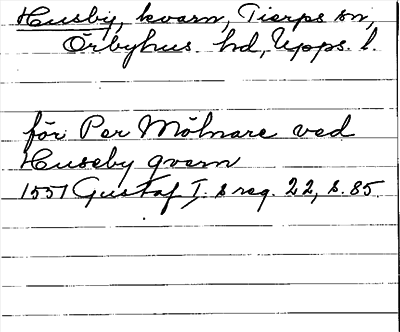 Husby, kvarn, Tierps sn,
Örbyhus hd, Upps. l.
för Per Mölnare ved
Huseby qvarn
1551 Gustaf I. s reg. 22, s. 85